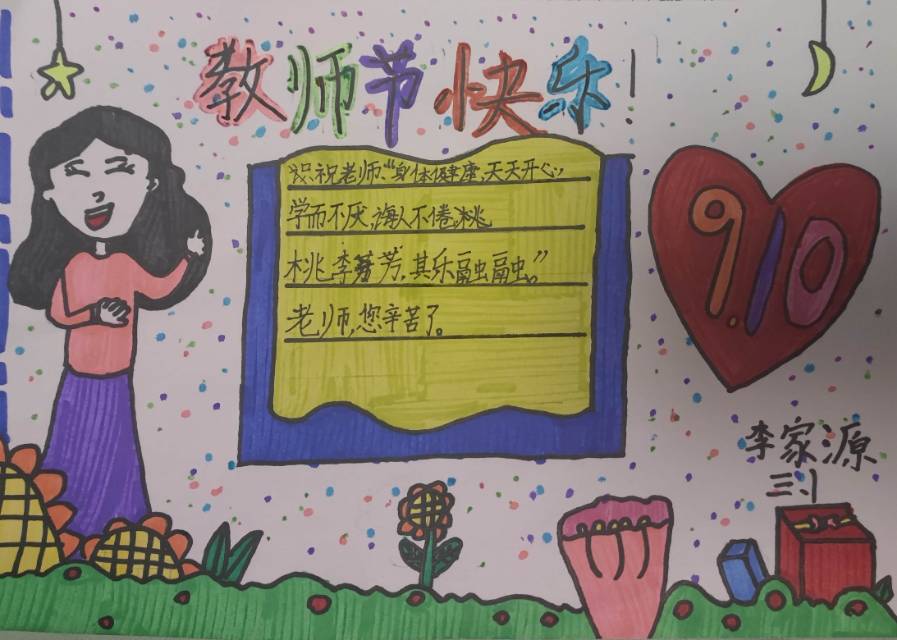 教师节快乐!
祝老师:“身体健康,天天开心,
学而不厌,诲人不倦,桃
桃李芬芳,其乐融融。”
老师,您辛苦了。
9.10
李家源
三、1